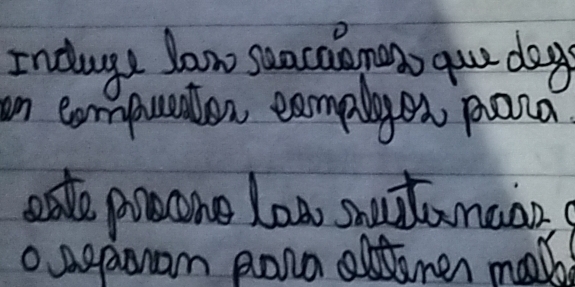 Incluye las reacciones que deg
en compuestos complejos para
este proceso las sustancias
o separan para obtener mol